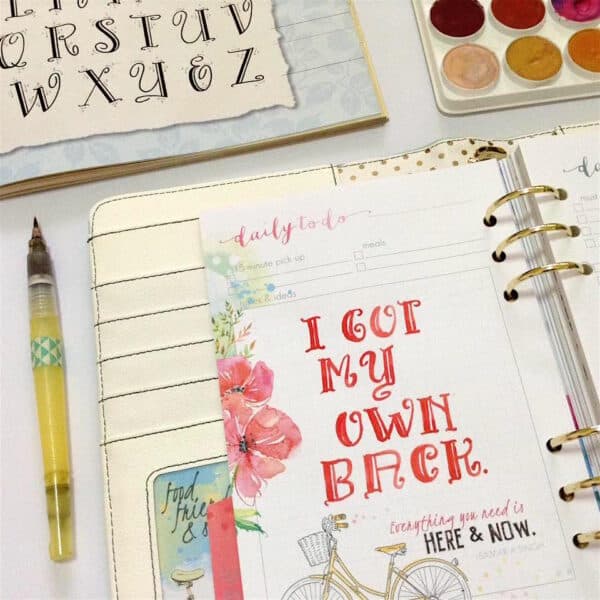 O R S T U V
W X Y & Z
daily to do
15 minute pick up
meals
notes & ideas
I GOT
MY
OWN
BACK.
Everything you need is
HERE & NOW.
food,
must